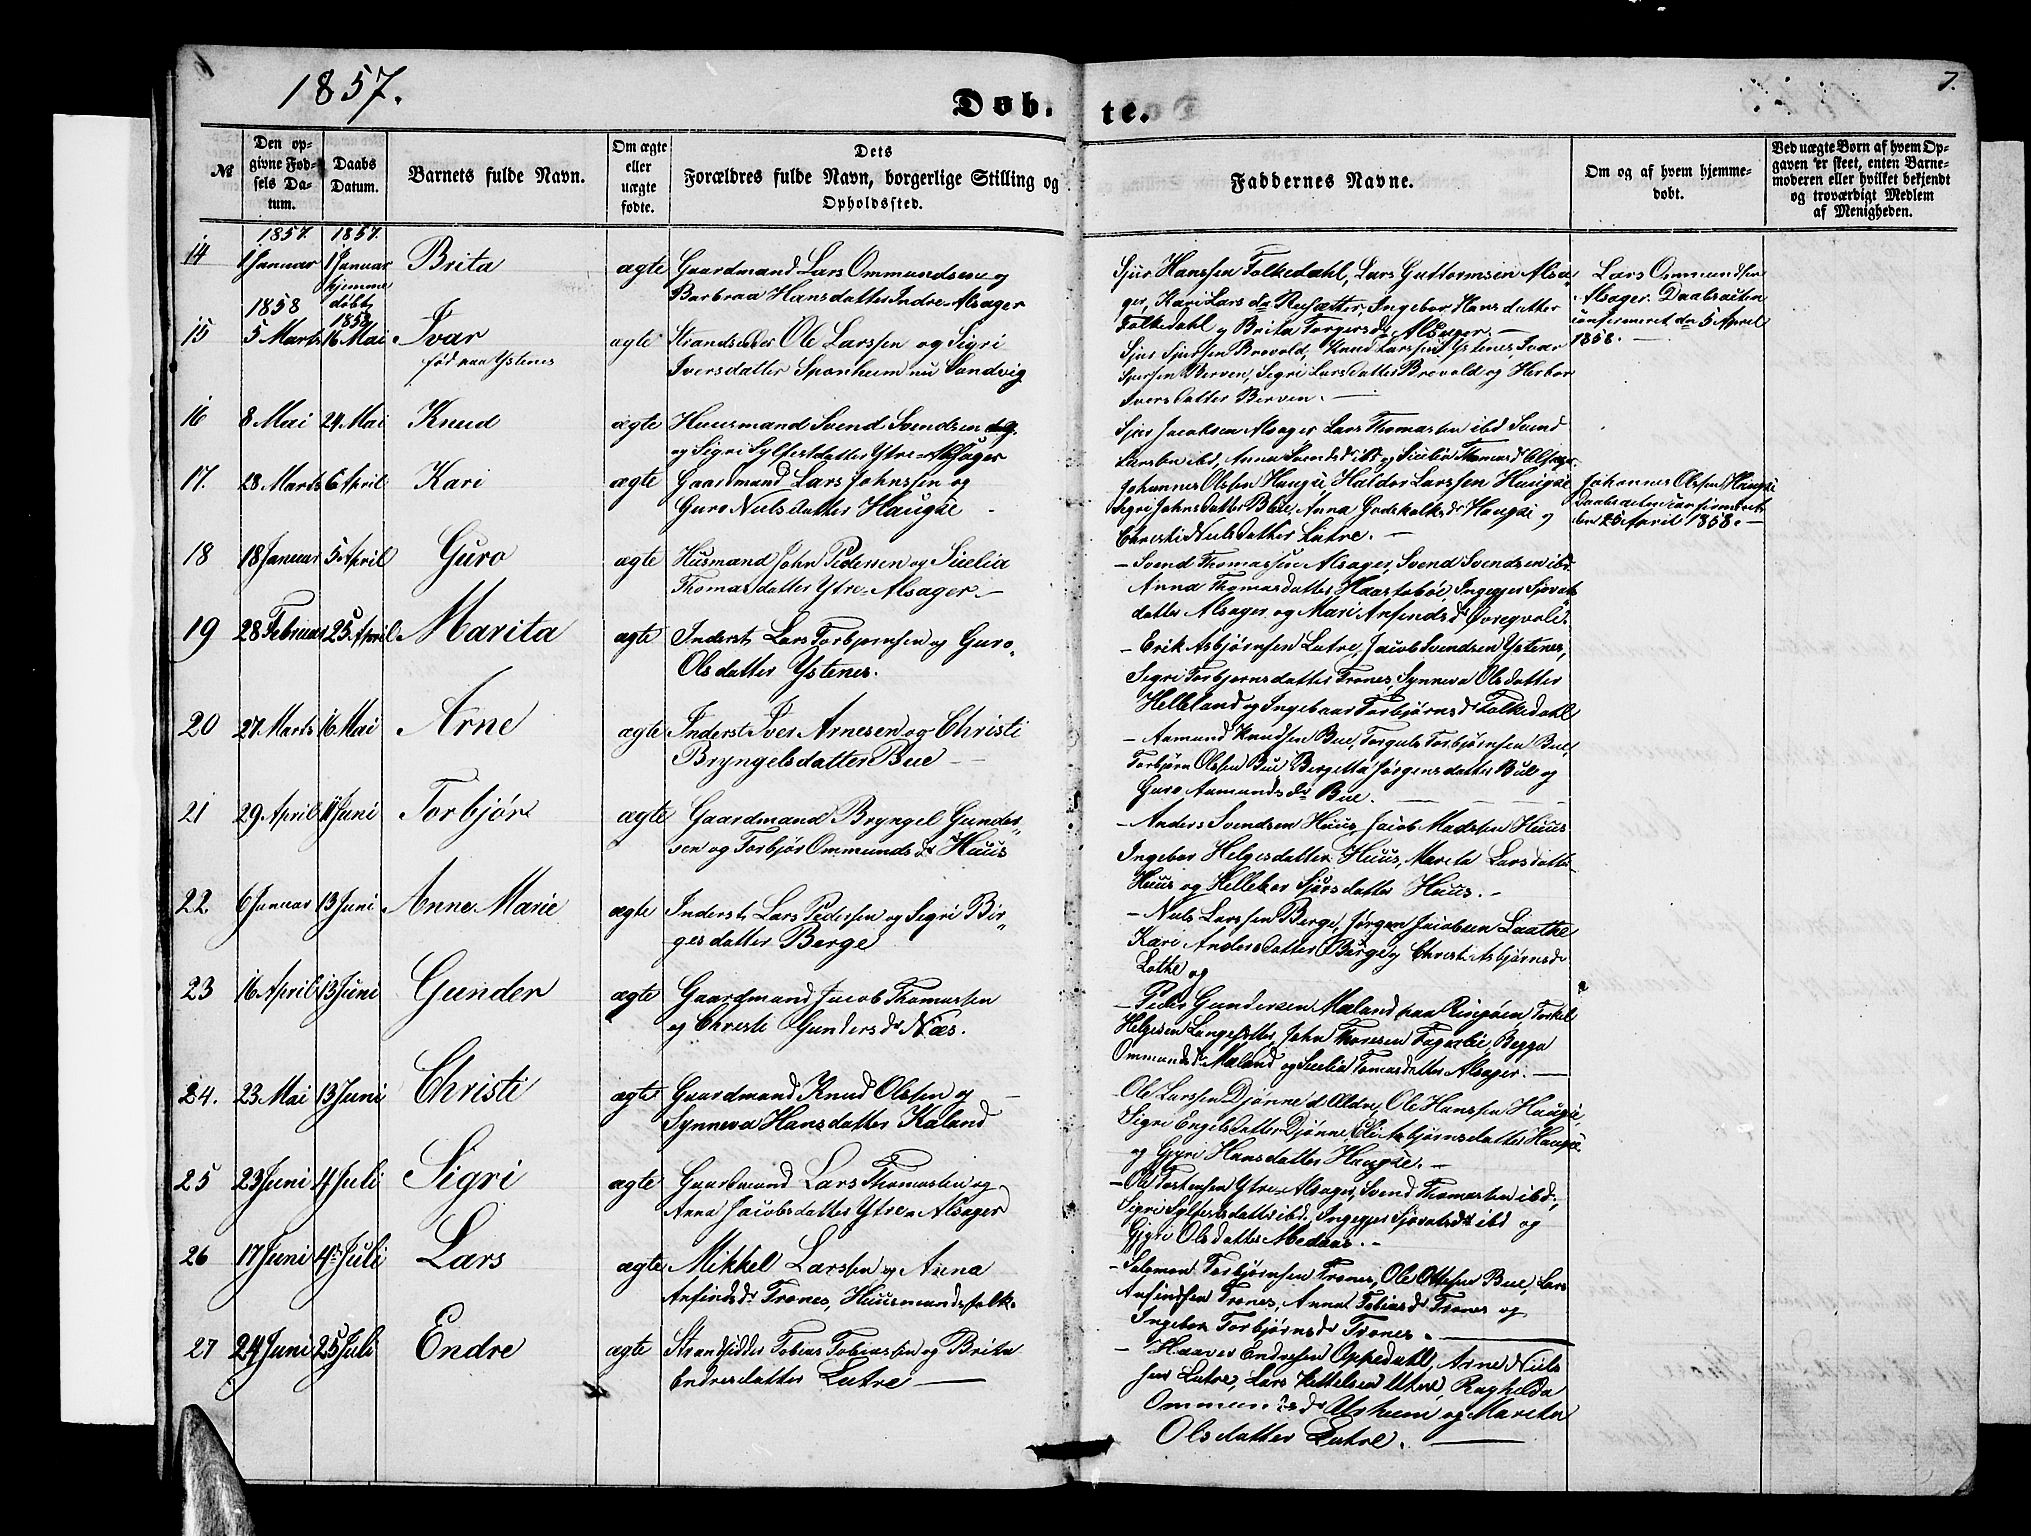 1857.
Døb-
te.
7.
№
Den op-
givne Fød-
sels Da-
tum.
Daabs
Datum.
Barnets fulde Navn.
Om ægte
eller
uægte
fødte.
Dets
Forældres fulde Navn, borgerlige Stilling og
Opholdssted.
Faddernes Navne.
Om og af hvem hjemme-
døbt.
Ved uægte Børn af hvem Op-
gaven er skeet, enten Barne-
moderen eller hvilket bekjendt
og troværdigt Medlem
af Menigheden.
1857. 1857.
14 1 Januar 1 Januar Brita ægte Gaardmand Lars Ommundsen og
hjemme
døbt
Barbraa Hansdatter Indre Alsager
Sjur Hanssen Folkedahl, Lars Guttormsen Alsa-
ger, Kari Larsdr Ingebor Hansdatter
Folkedahl og Brita Torgersdr Alsager.
Lars Ommundsen
Alsager. Daabsacten
confirmeret dn 5 April
1858.
1858 1858
15 5 Marts 16 Mai Ivar ægte Strandsidder Ole Larssen og Sigri
fød paa Ystenes
Iversdatter Sponheim nu Sandvig
Sjur Sjursen Brevold, Knud Larssen Ystenes, Ivar
Sjursen Berven, Sigri Larsdatter Brevold og Herbor
Iversdatter Berven.
16 8 Mai 24 Mai Knud ægte Huusmand Svend Svendsen
og Sigri Sylfestdatter Ytre Alsager
Sjur Jacobsen Alsager Lars Thomassen ibd Svend
Larssen ibd, Anna Svendsd ibd og Sicilia Thomasd Alsager.
17. 28 Marts 6 April Kari ægte Gaardmand Lars Johnssen og
Guro Nielsdatter Haugse
Johannes Olssen Haugse, Haldor Larssen Haugse
Sigri Johnsdatter Bue, Anna Godskalksdr Haugse og
Christi Nielsdatter Lutre.
Johannes Olssen Haugse
Daabsacten confirmeret
den 25 April 1858.
18 18 Januar 5 April Guro ægte Husmand John Pedersen og Sicelia
Thomasdatter Ytre Alsager
Svend Thomassen Alsager, Svend Svendsen ibd
Anna Thomasdatter Haastabøe, Ingegjer Sjovats
datter Alsager og Mari Anfindsd Øvregvold.
19 28 Februar 25 April Marita ægte Inderst Lars Torbjørnsen og Guro
Olsdatter Ystenes.
Erik Asbjørnsen Lutre, Jacob Svendsen Ystenes,
Sigri Torbjørnsdatter Trones, Synneva Olsdatter
Helleland og Ingebaar Torbjørnsdr Folkedahl
20 27 Marts 16 Mai Arne ægte Inderst Iver Arnesen og Christi
Bryngelsdatter Bue
Aamund Knudsen Bue, Torguls Torbjørnsen Bue,
Torbjørn Olssen Bue Bergetta Jørgensdatter Bue og
Guro Aamundsdr Bue.
21 29 April 11 Juni Torbjør ægte Gaardmand Bryngel Gunder-
sen og Torbjør Ommundsdr Huus
Anders Svendsen Huus, Jacob Madssen Huus
Ingebor Helgesdatter Huus, Marita Larsdatter
Huus og Hellebor Sjursdatter Huus.
22 6 Januar 13 Juni Anne Marie ægte Inderst Lars Pedersen og Sigri Bir-
gesdatter Berge
Niels Larssen Berge, Jørgen Jacobsen Laathe
Kari Andersdatter Berge og Christi Asbjørnsdr
Lothe
23 16 April 13 Juni Gunder ægte Gaardmand Jacob Thomassen
og Christi Gundersdr Næs.
Peder Gundersen Mæland paa Ringøen, Torkel
Helgesen Langesetter, John Thoresen Fagerlie, Begga
Ommundsdr Mæland og Sicelia Tomasdatter Alsager.
24. 23 Mai 13 Juni Christi ægte Gaardmand Knud Olssen og
Synneva Hansdatter Kaland
Ole Larssen Djønne d Ældre, Ole Hanssen Haugse,
Sigri Engelsdatter Djønne, Eli Asbjørnsdatter Haugse
og Gjyri Hansdatter Haugse.
25 23 Juni 4 Juli Sigri ægte Gaardmand Lars Thomassen og
Anna Jacobsdatter Ytre Alsager
Ole Torstensen Ytre Alsager, Svend Thomassen ibd,
Sigri Sylfestsdatter ibd. Ingegjer Sjovatsdr ibd og
Gjyri Olsdatter Medaas.
26 17 Juni 4 Juli Lars ægte Mikkel Larssen og Anna
Anfindsdr Trones, Huusmandsfolk.
Salomon Torbjørnsen Trones, Ole Ottesen Bue, Lars
Anfindsen Trones, Anna Tobiasdr Trones og
Ingebor Torbjørnsdr Trones.
27 24 Juni 25 Juli Endre ægte Strandsidder Tobias Tobiassen og Brita
Endresdatter Lutre
Haaver Endresen Oppedahl, Arne Niels
sen Lutre, Lars Kettelsen Utne, Raghilda
Ommundsdr Alsheim og Marita
Olsdatter Lutre.